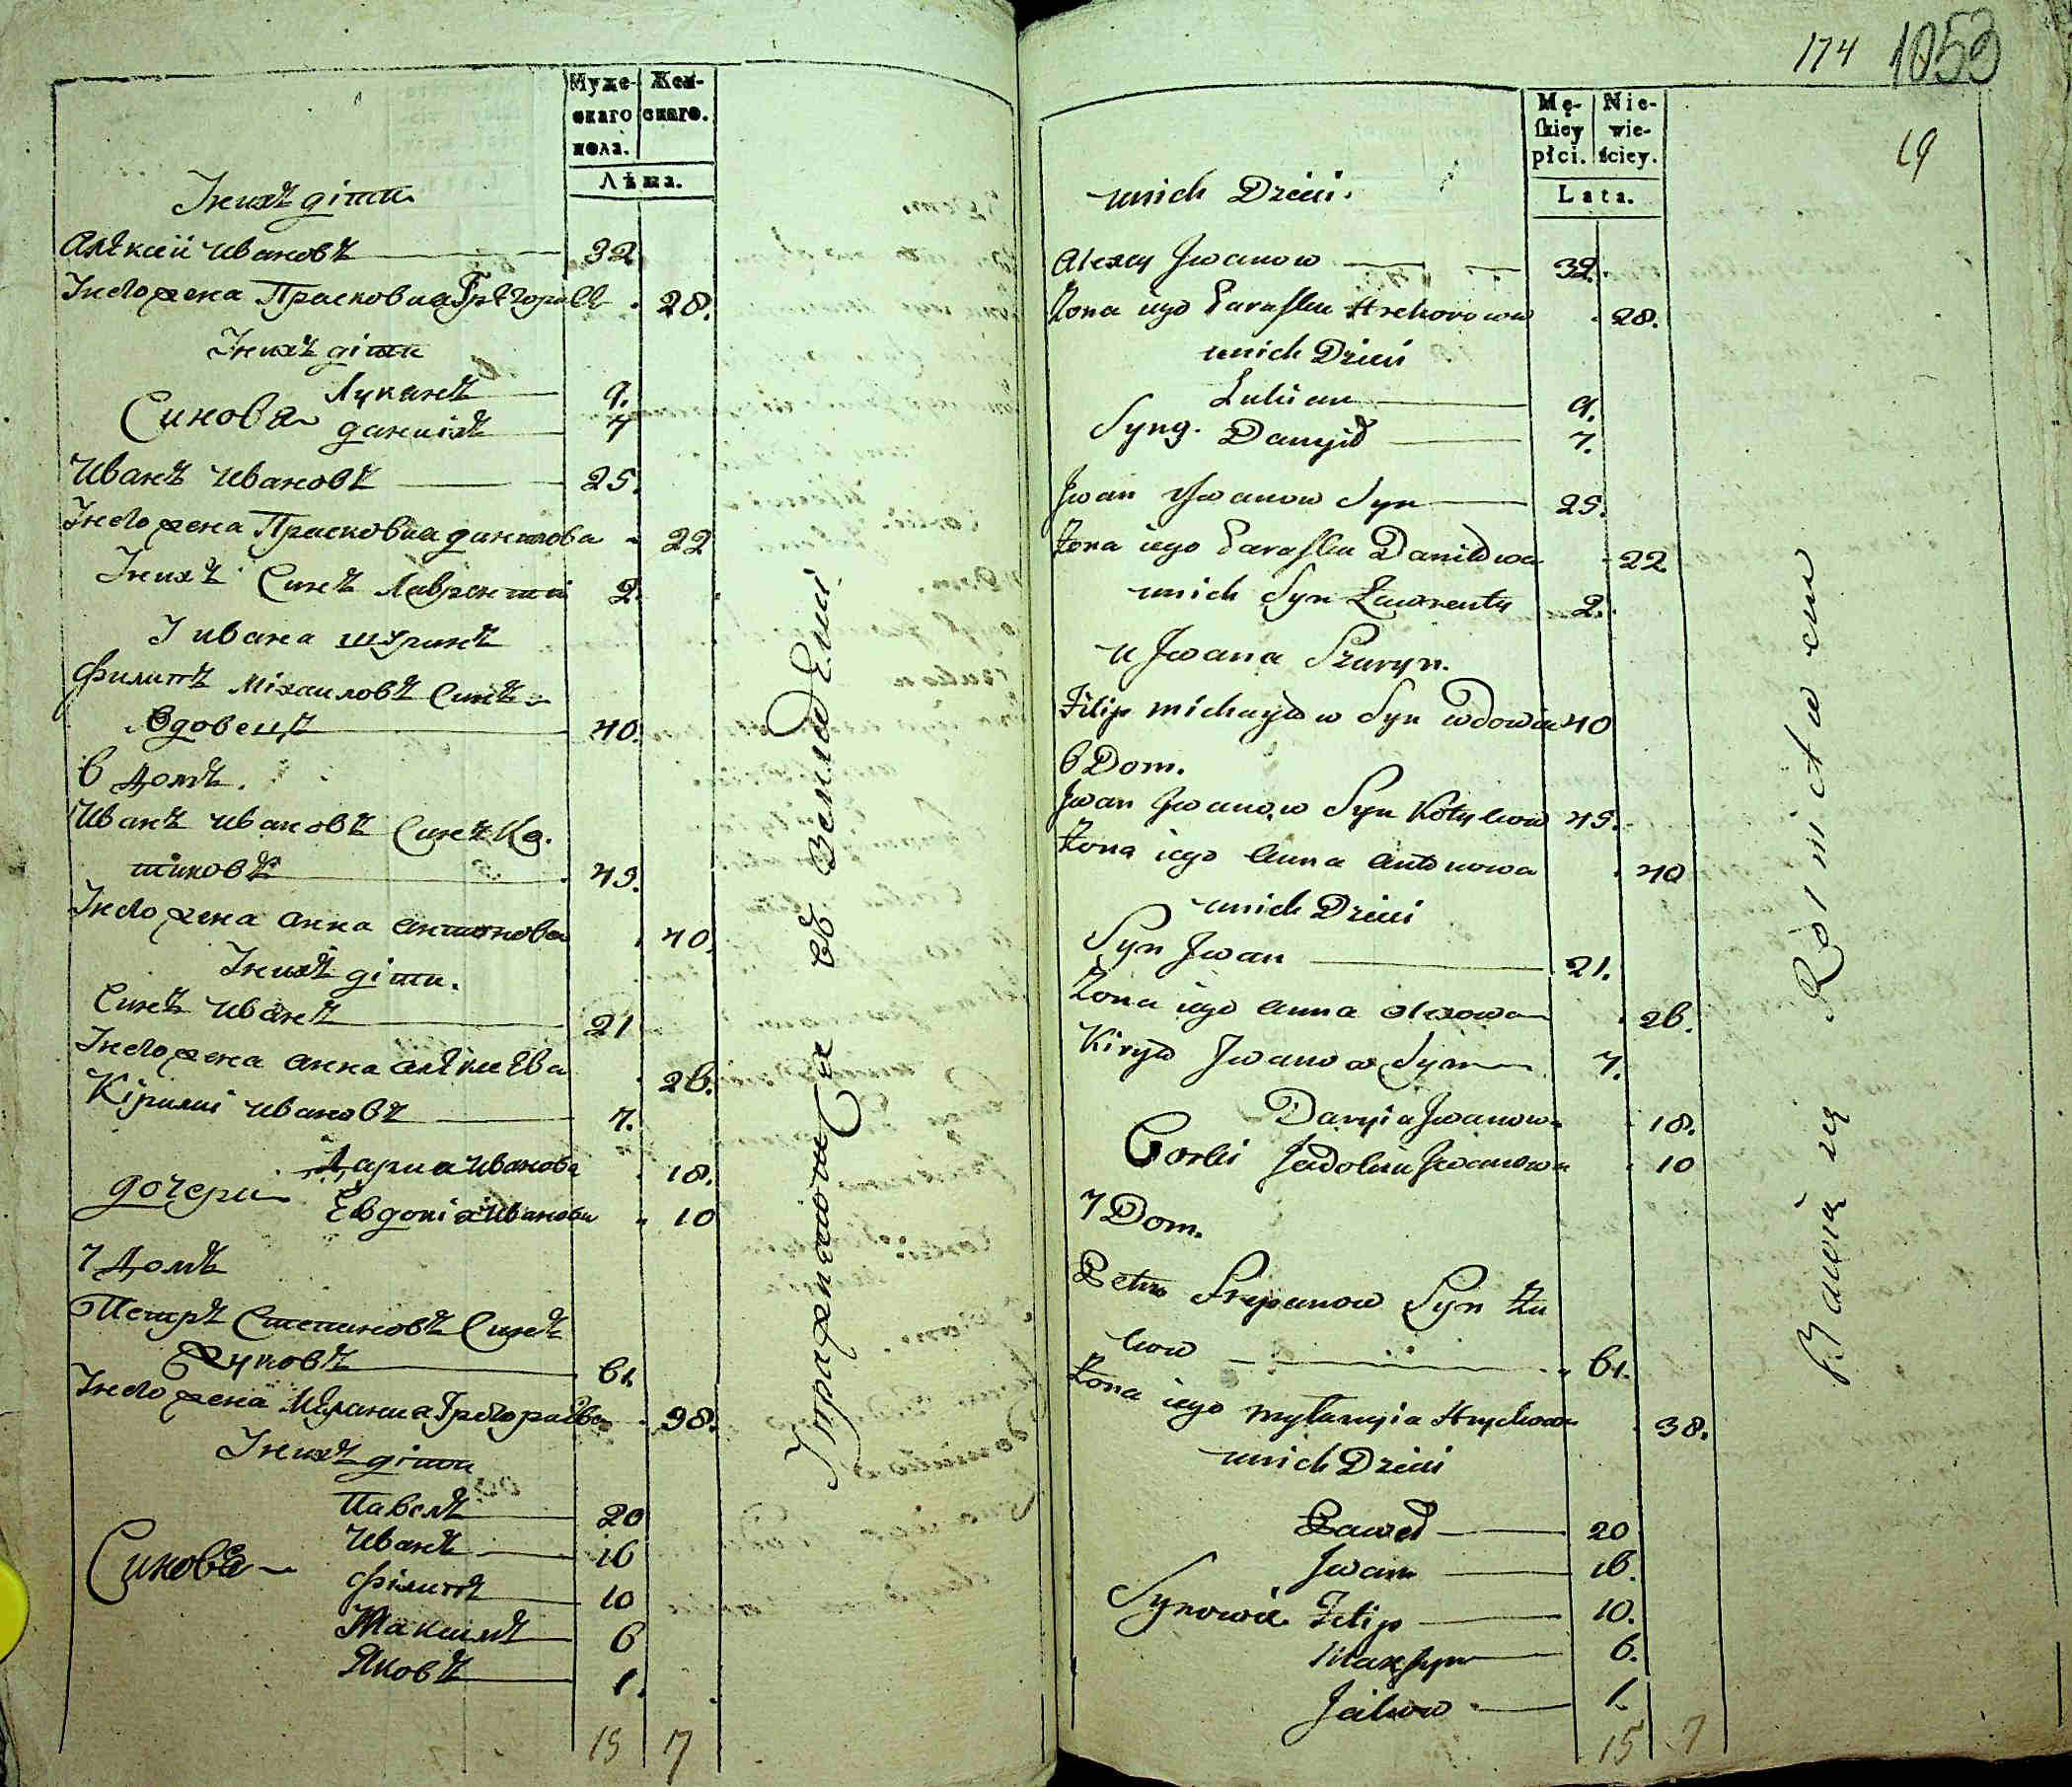 Муже-
скаго
пола.
Жен-
скаго.
Лѣта.
Унихъ діти.
Алѣксѣй Ивановъ 32
Унего жена Прасковиа Грѣгориев 28.
Унихъ діти
Лукянъ 9.
Синовя Данилъ 7
Иванъ Ивановъ 25.
Унего жена Прасковиа Данилова 22
Унихъ Синъ Лаврентій 2.
У Ивана шуринъ
Филипъ Міхаиловъ Синъ
Вдовецъ 40.
6 Домъ.
Иванъ Ивановъ Синъ Ко-
тиковъ 45.
Унего жена Анна Антонова 40.
Унихъ діти.
Синъ Иванъ 21
Унего жена Анна Алѣксѣева 26.
Кірилій Ивановъ 7.
Дариа Иванова 18.
дочери Евдокіа Иванова 10
7 Домъ
Петръ Степановъ Синъ
Жуковъ 61.
Унего жена Мѣланиа Грѣгориева 38.
Унихъ діти
Павелъ 20
Иванъ 16
Синовя Філипъ 10
Максимъ 6
Яковъ 1.
15 7
174 1053
19
Mę-
skiey
płci.
Nie-
wie-
ściey.
Lata.
unich Dzieci.
Alexey Jwanow 32.
Żona iego Paraska Hrehorowa 28.
unich Dzieci
Lukian 9.
Syny. Danyło 7.
Jwan Jwanow Syn 25.
Żona iego Paraska Daniłowa 22
unich Syn Ławrenty 2.
u Jwana Szuryn.
Filip Michayłow Syn wdowiec 40
6 Dom.
Jwan Jwanow Syn Kotykow 45.
Żona iego Anna Antonowa 40
unich Dzieci
Syn Jwan 21.
Żona iego Anna Olexowa 26.
Kiryło Jwanow Syn 7.
Daryia Jwanowa 18.
Corki Jewdokia Jwanowa 10
7 Dom.
Petro Stepanow Syn Żu
kow 61.
Żona iego Mełanyia Hryhorowa 38.
unich Dzieci
Paweł 20
Jwan 16.
Synowie Filip 10.
Maxym 6.
Jakow 1.
15 7